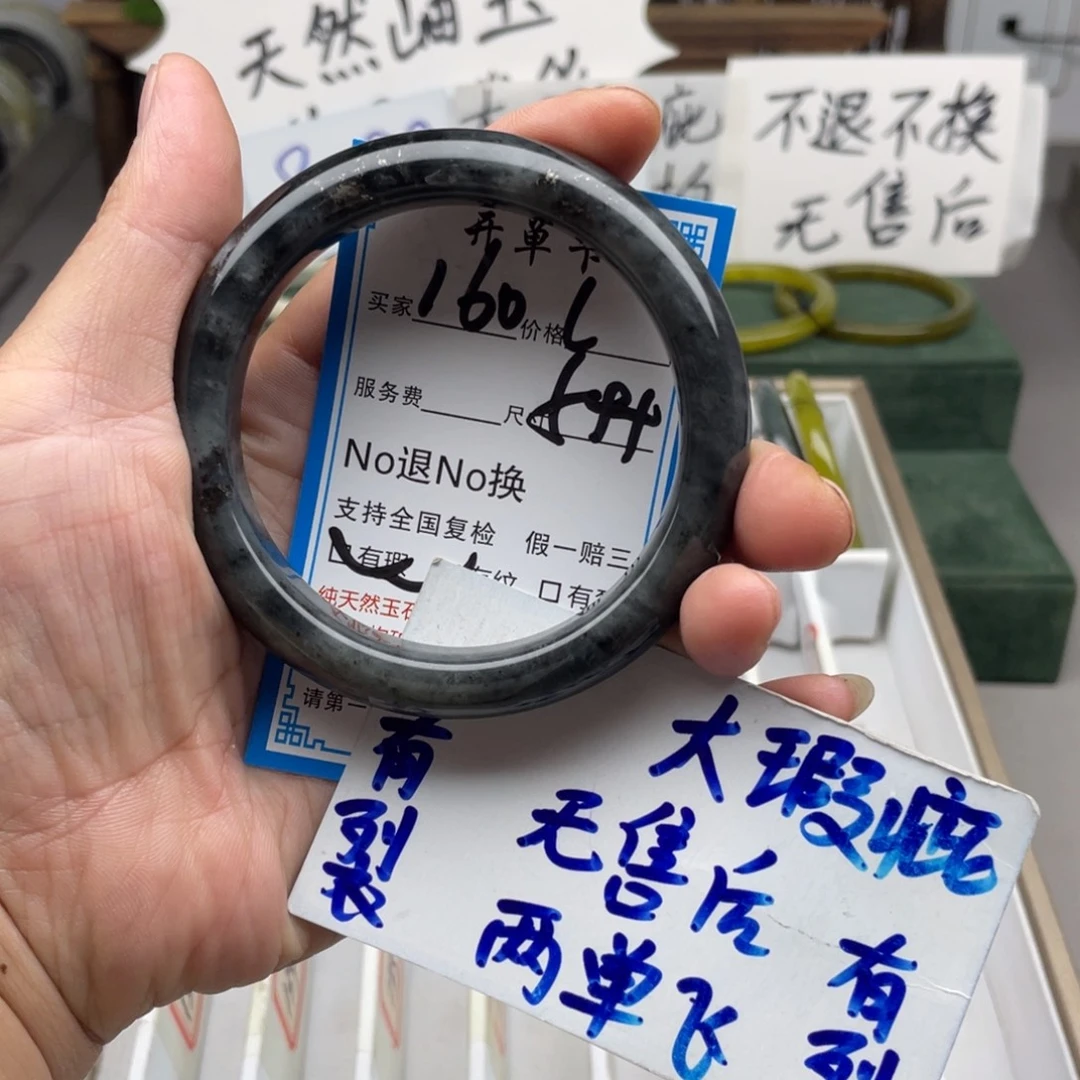 天然岫玉
不退不换
无售后
疵
开单卡
买家 160 价格
服务费 尺
No退No换
支持全国复检 假一赔三
口有瑕 有纹 口有裂
纯天然玉石
请第一
有裂
大瑕疵
无售后
两单飞
有裂